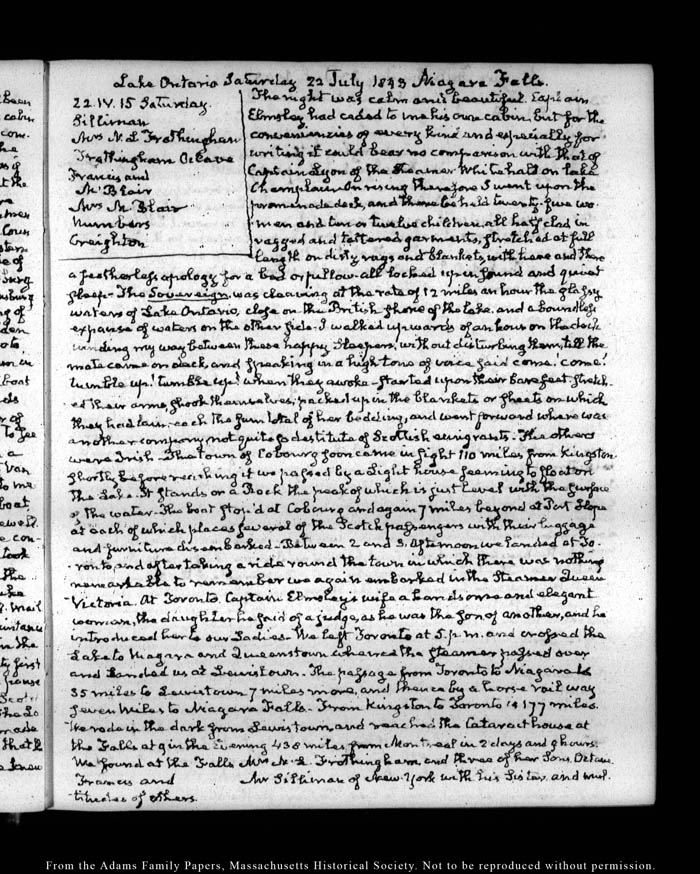 Lake Ontario Saturday 22 July 1843 Niagara Falls.
22. IV. 15 Saturday.
Silliman
Mrs N. L Frothingham
Frothingham Octave
Francis and
M. Blair
Mrs M. Blair
Numbers
Creighton
The night was calm and beautiful. Captain
Elmsley had ceded to me his own cabin, but for the
conveniencies of every kind and especially for
writing it could bear no comparison with that of
Captain Lyon of the Steamer Whitehall on Lake
Champlain. On rising therefore I went upon the
promenade deck, and there beheld twenty-five wo-
men and ten or twelve children, all half clad in
ragged and tattered garments, stretched at full
length on dirty rags and blankets, with here and there
a featherless apology for a bed or pillow - all locked up in sound and quiet
sleep - The Sovereign, was cleaving at the rate of 12 miles an hour the glassy
waters of Lake Ontario, close on the British shore of the lake, and a boundless
expanse of waters on the other side - I walked upwards of an hour on the deck
winding my way between these happy sleepers, without disturbing them, till the
mate came on deck, and speaking in a high tone of voice said come! come!
tumble up! tumble up! when they awoke - started upon their bare feet. stretch-
ed their arms, shook themselves, packed up in the blankets or sheets on which
they had lain, each the sum total of her bedding, and went forward where was
another company, not quite so destitute of Scottish emigrants - The others
were Irish. The town of Cobourg soon came in sight 110 miles from Kingston
shortly before reaching it we passed by a Light house seeming to float on
the Lake. It stands on a Rock the peak of which is just level with the surface
of the water. The boat stop'd at Cobourg and again 7 miles beyond at Port Hope
at each of which places several of the Scotch passengers with their luggage
and furniture disembarked - Between 2 and 3. Afternoon we landed at To-
ronto, and after taking a ride round the town in which there was nothing
remarkable to remember we again embarked in the Steamer Queen
Victoria. At Toronto, Captain Elmsley's wife a handsome and elegant
woman, the daughter he said of a judge, as he was the son of another, and he
introduced her to our Ladies. We left Toronto at 5. p.m. and crossed the
Lake to Niagara and Queenstown whence the steamer passed over
and Landed us at Lewistown. The passage from Toronto to Niagara is
35 miles to Lewistown 7 miles more, and thence by a horse rail way
seven Miles to Niagara Falls. From Kingston to Toronto is 177 miles.
We rode in the dark from Lewistown and reached the Cataract house at
the Falls at 9 in the Evening 435 miles from Montreal in 2 days and 9 hours.
We found at the Falls Mrs N. L. Frothingham, and three of her Sons, Octave,
Francis and Mr Silliman of New-York with his Sister, and mul-
titudes of others.
From the Adams Family Papers, Massachusetts Historical Society. Not to be reproduced without permission.